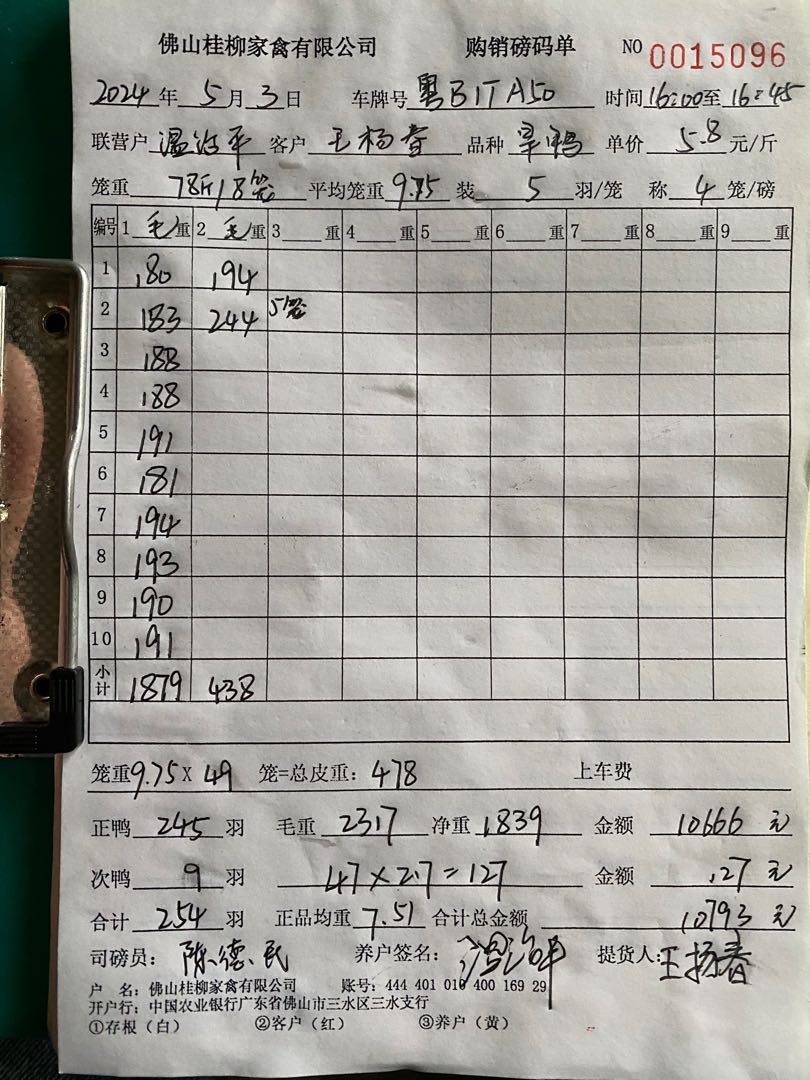 佛山桂柳家禽有限公司 购销磅码单 NO 0015096
2024年5月3日 车牌号 粤B1TA50 时间16:00至16:45
联营户 温治平 客户 王杨春 品种 旱鸭 单价 5.8 元/斤
笼重 78斤/8笼 平均笼重 9.75 装 5 羽/笼 称 4 笼/磅
编号 1 毛重 2 毛重 3 重 4 重 5 重 6 重 7 重 8 重 9 重
1 180 194
2 183 244 5笼
3 188
4 188
5 191
6 181
7 194
8 193
9 190
10 191
小计 1879 438
笼重9.75X49 笼=总皮重:478 上车费
正鸭 245 羽 毛重 2317 净重 1839 金额 10666 元
次鸭 9 羽 47×2.7=127 金额 127 元
合计 254 羽 正品均重 7.51 合计总金额 10793 元
司磅员: 陈德民 养户签名: 温治平 提货人: 王扬春
户 名: 佛山桂柳家禽有限公司 账号: 444 401 010 400 169 29
开户行: 中国农业银行广东省佛山市三水区三水支行
①存根(白) ②客户(红) ③养户(黄)